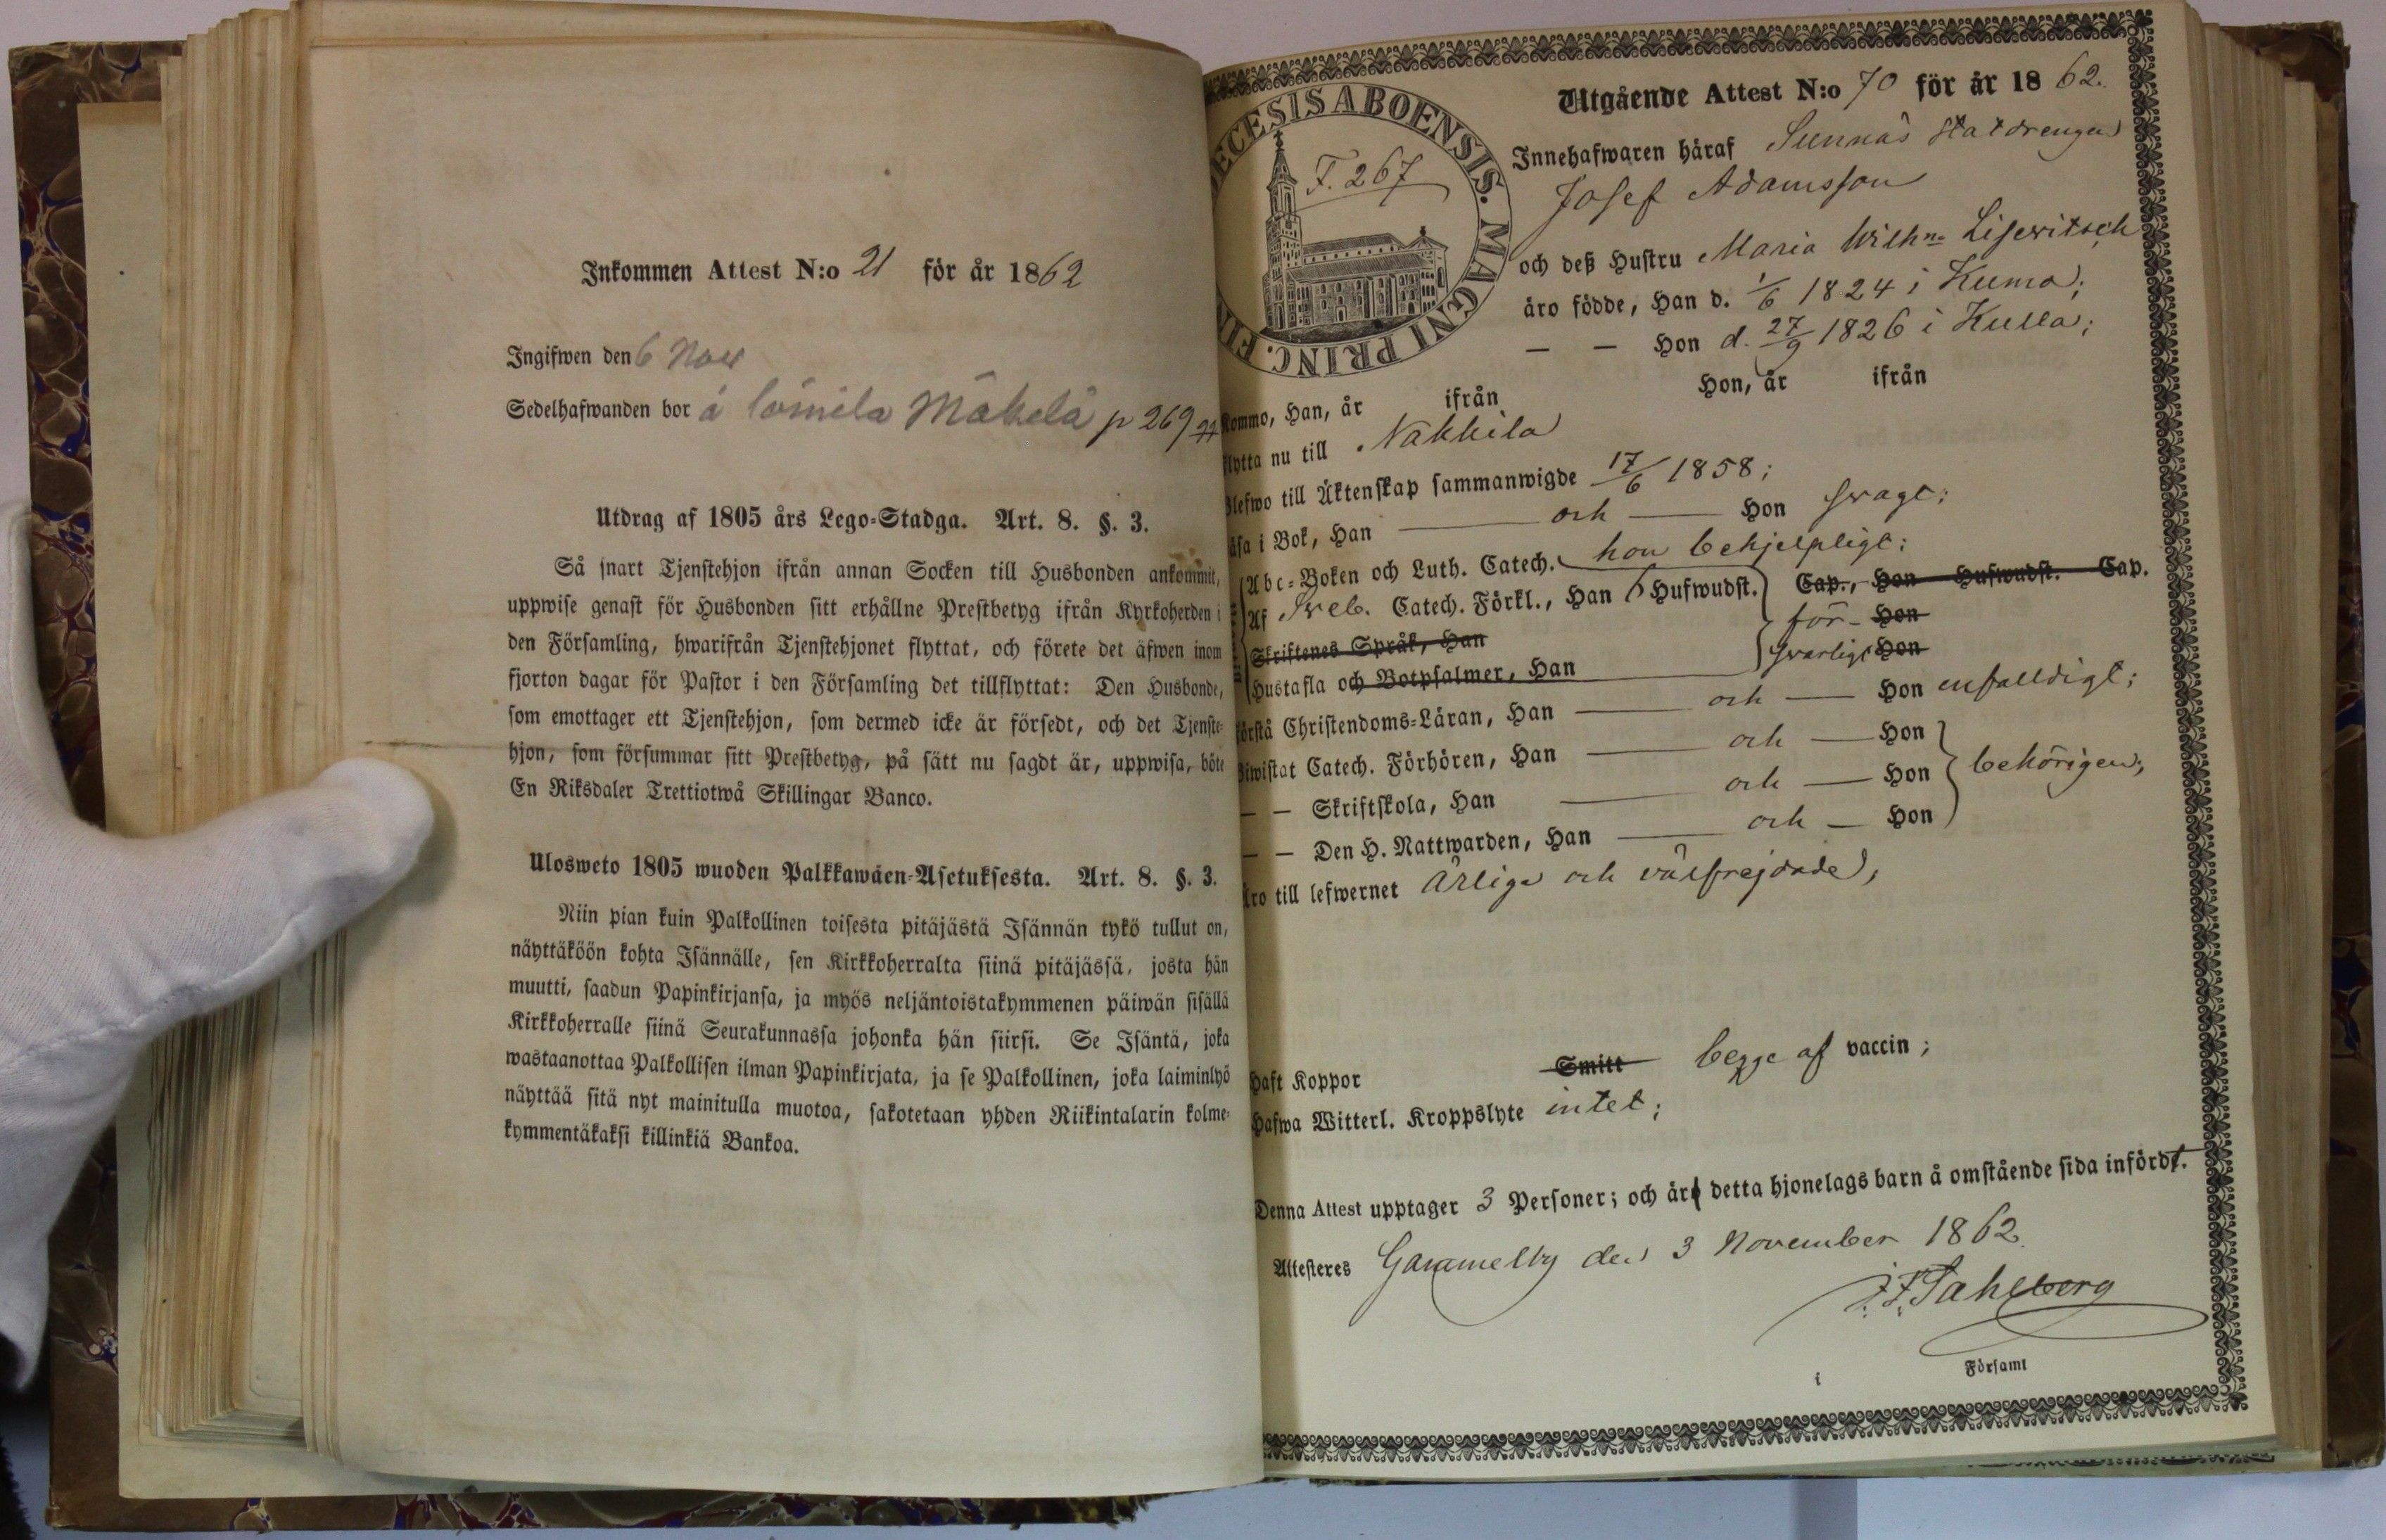 Inkommen Attest N:o 21 för år 1862
Ingifwen den 6 Nov
Sedelhafwanden bor å Mäkelä p 269
Utdrag af 1805 års Lego-Stadga. Art. 8. §. 3.
Så snart Tjenstehjon ifrån annan Socken till Husbonden ankommit,
uppwise genast för Husbonden sitt erhållne Prestbetyg ifrån Kyrkoherden i
den Församling, hwarifrån Tjenstehjonet flyttat, och förete det äfwen inom
fjorton dagar för Pastor i den Församling det tillflyttat: Den Husbonde,
som emottager ett Tjenstehjon, som dermed icke är försedt, och det Tjenste-
hjon, som försummar sitt Prestbetyg, på sätt nu sagdt är, uppwisa, böte
En Riksdaler Trettiotwå Skillingar Banco.
Ulosweto 1805 wuoden Palkkawäen-Asetuksesta. Art. 8. §. 3.
Niin pian kuin Palkollinen toisesta pitäjästä Isännän tykö tullut on,
näyttäköön kohta Isännälle, sen Kirkkoherralta siinä pitäjässä, josta hän
muutti, saadun Papinkirjansa, ja myös neljäntoistakymmenen päiwän sisällä
Kirkkoherralle siinä Seurakunnassa johonka hän siirsi. Se Isäntä, joka
wastaanottaa Palkollisen ilman Papinkirjata, ja se Palkollinen, joka laiminlyö
näyttää sitä nyt mainitulla muotoa, sakotetaan yhden Riikintalarin kolme-
kymmentäkaksi killinkiä Bankoa.
ECESIS ABOENSIS. MAGNI PRINC. FIN
F. 267
Utgående Attest N:o 70 för år 1862.
Innehafwaren häraf Sunnäs statdrengen
Josef Adamsson
och deß Hustru Maria Wilhna Lisewitsch
äro födde, Han d. 1/6 1824 i Kumo;
— — Hon d. 27/9 1826 i Kulla;
Kommo, Han, år ifrån Hon, år ifrån
flytta nu till Nakkila
Blefwo till Äktenskap sammanwigde 17/6 1858;
läsa i Bok, Han — och — Hon svagt;
Abc-Boken och Luth. Catech. hon behjelpligt;
Af Sveb. Catech. Förkl., Han 6 Hufwudst. Cap., Hon Hufwudst. Cap.
Skriftenes Språk, Han för- Hon
Hustafla och Botpsalmer, Han svarligt Hon
förstå Christendoms-Läran, Han — och — Hon enfalldigt;
Biwistat Catech. Förhören, Han — och — Hon
— — Skriftskola, Han — och — Hon behörigen;
— — Den H. Nattwarden, Han — och — Hon
Äro till lefwernet ärliga och välfrejdade,
Haft Koppor Smitt begge af vaccin;
Hafwa Witterl. Kroppslyte intet;
Denna Attest upptager 3 Personer; och äro detta hjonelags barn å omstående sida infördt.
Attesteres Gammelby den 3 November 1862.
J. F. Sahlberg
i Församl